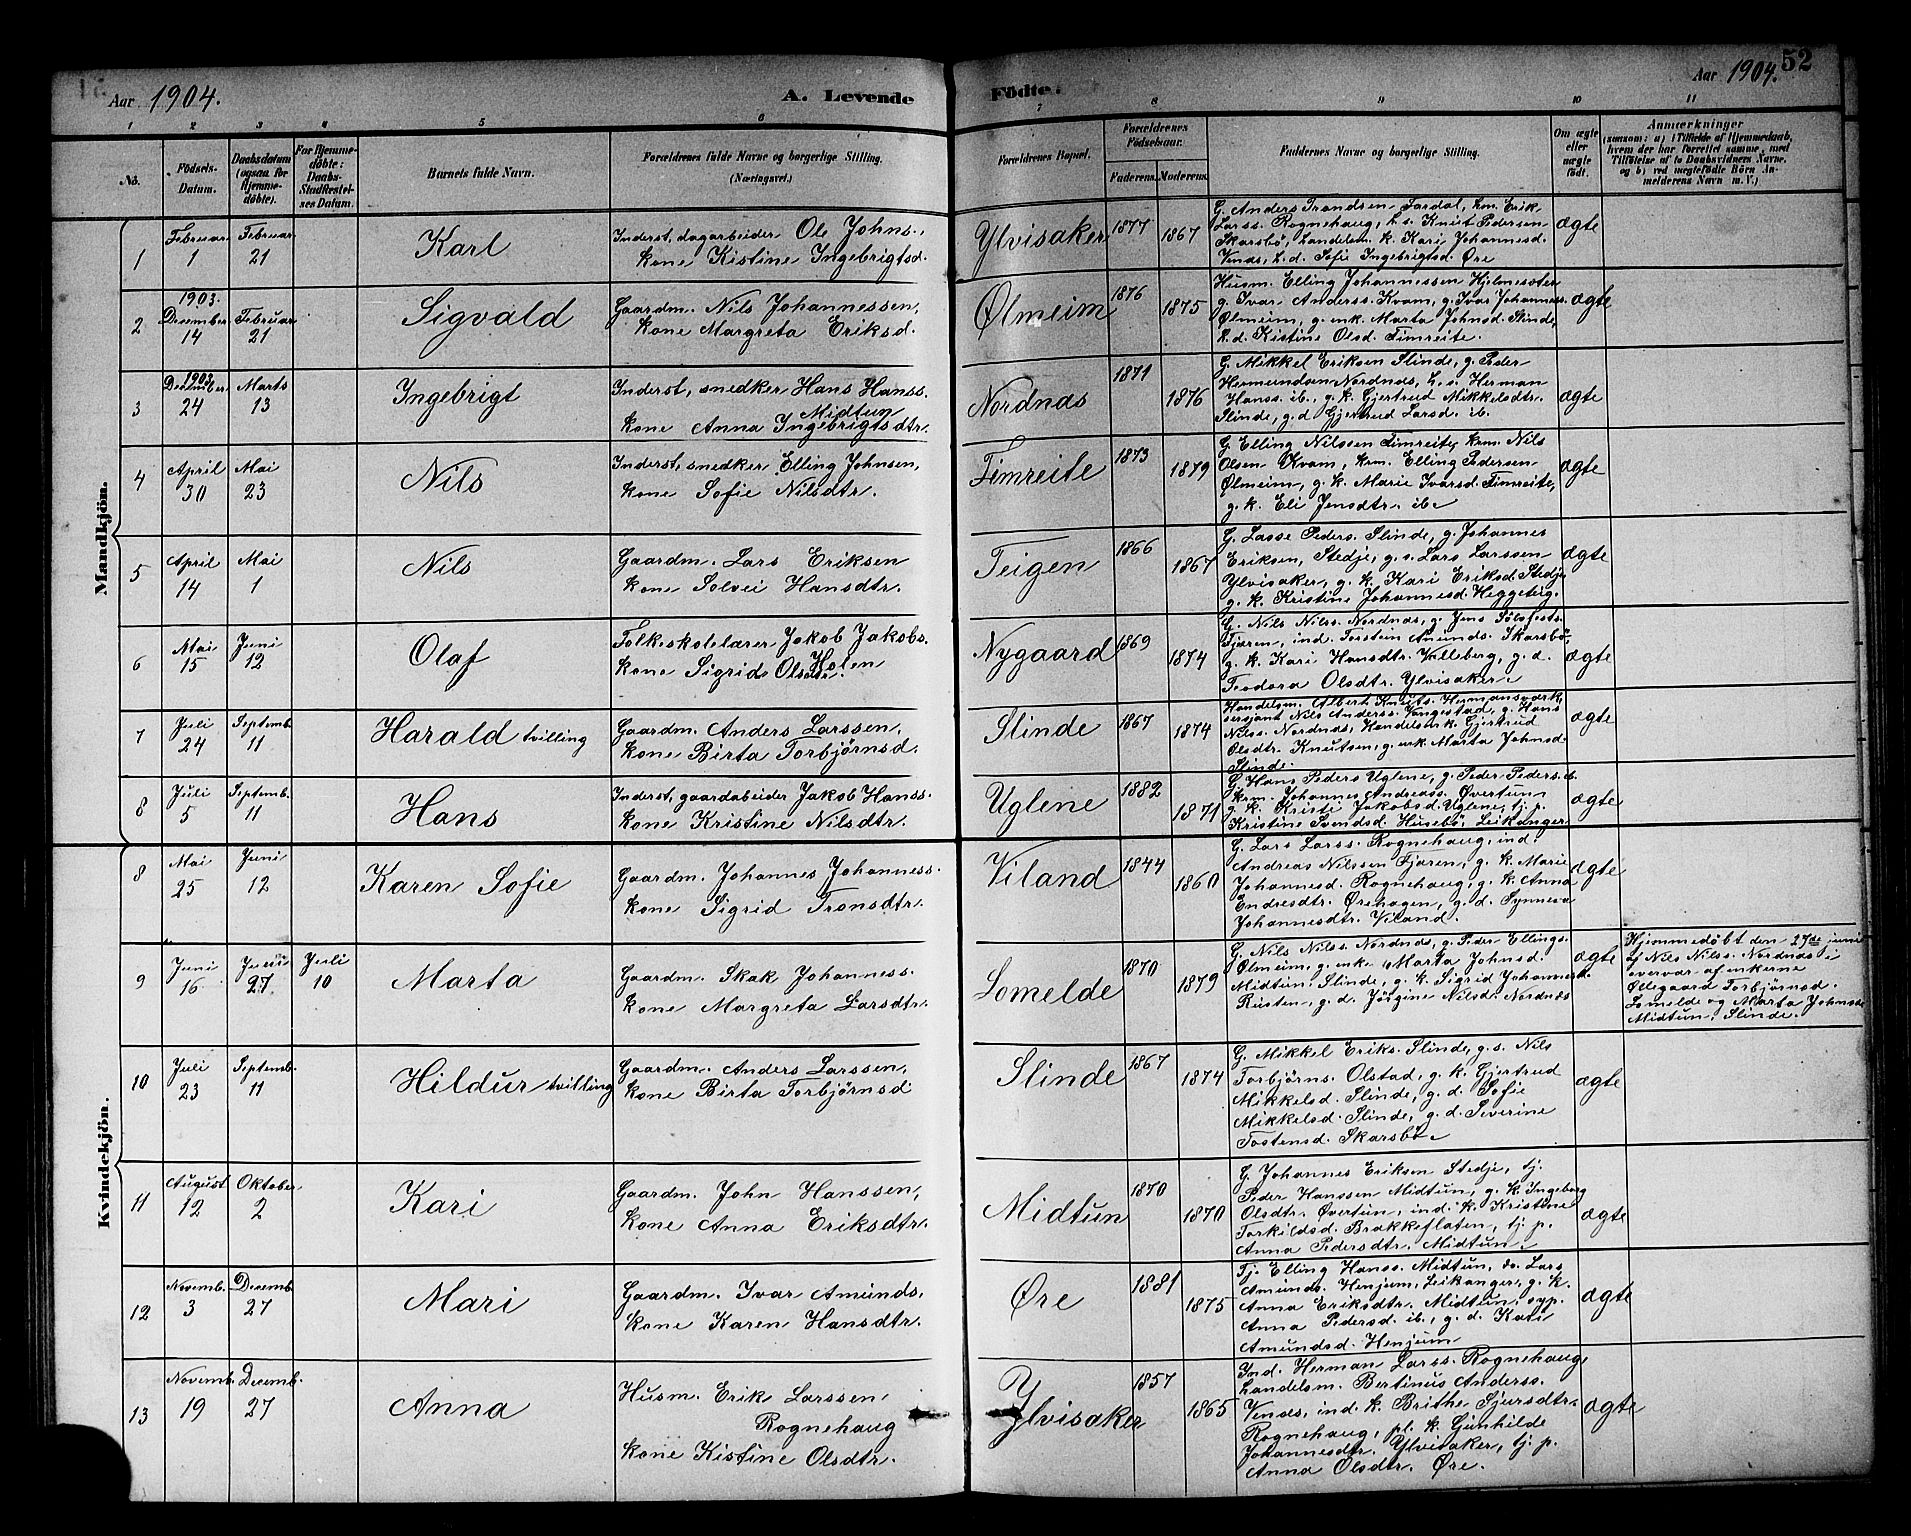 Aar 1904. A. Levende Födte. Aar 1904. 52
1 2 3 4 5 6 7 8 9 10 11
No. Födsels-Datum. Daabsdatum (ogsaa for Hjemmedöbte). For Hjemmedöbte: Daabs-Stadfæstelses Datum. Barnets fulde Navn. Forældrenes fulde Navne og borgerlige Stilling. (Næringsvei.) Forældrenes Bopæl. Forældrenes Födselsaar. Faderens. Moderens. Faddernes Navne og borgerlige Stilling. Om ægte eller uægte födt. Anmærkninger
(saasom: a) i Tilfælde af Hjemmedaab, hvem der har forrettet samme, med Tilföielse af to Daabsvidners Navne, og b) ved uægtefödte Börn Anmelderens Navn m. V.)
Mandkjön.
1 Februar 1 Februar 21 Karl Inderst, dagarbeider Ole Johns.,
kone Kistine Ingebrigtsd. Ylvisaker 1877 1867
G. Anders Trondsen Fardal, hm. Erik
Larss. Rognehaug, L. s. Knut Pedersen
Skarsbø, Landelsm. k. Kari Johannesd.
Vendes, L. d. Sofie Ingebrigtsd. Øre
ægte
2 1903. December 14 Februar 21 Sigvald Gaardm. Nils Johannessen,
kone Margreta Eriksd. Ølmeim 1876 1875
Husm. Elling Johannessen Hjelmeseter
g. Ivar Anderss. Kvam, g. Ivar Johanness.
Ølmeim, g. enk. Marta Johnsd. Slinde,
L. d. Kistine Olsd. Timreite.
ægte
3 1903 December 24 Marts 13 Ingebrigt Inderst, snedker Hans Hanss.
Midtun
kone Anna Ingebrigtsdtr. Nordnæs 1871 1876
G. Mikkel Eriksen Slinde, g. Peder
Hermundsen Nordnæs, L. s. Herman
Hanss. ib., g. k. Gjertrud Mikkelsdtr.
Slinde, g. d. Gjertrud Larsd. ib.
ægte
4 April 30 Mai 23 Nils Inderst, snedker Elling Johnsen,
kone Sofie Nilsdtr. Timreite 1873 1879
G. Elling Nilssen Timreite, krm. Nils
Olsen Kvam, krm. Elling Pedersen
Ølmeim, g. k. Marie Ivarsd. Timreite,
g. k. Eli Jensdtr. ib.
ægte
5 April 14 Mai 1 Nils Gaardm. Lars Eriksen
kone Solvei Hansdtr. Teigen 1866 1867
G. Lasse Peders. Slinde, g. Johannes
Eriksen, Stedje, g. s. Lars Larssen
Ylvisaker, g. k. Kari Eriksd. Stedje
g. k. Kristine Johannesd. Heggeberg.
ægte
6 Mai 15 Juni 12 Olaf Folkeskolelærer Jakob Jakobs.
Holen
kone Sigrid Olsdtr. Nygaard 1869 1874
G. Nils Nils. Nordnæs, g. Jens Sølofests.
Fjæren, ind. Torstein Amunds. Skarsbø
g. k. Kari Hansdtr. Volleberg, g. d.
Teodora Olsdtr. Ylvisaker.
ægte
7 Juli 24 Septemb. 11 Harald tvilling Gaardm. Anders Larssen,
kone Birta Torbjørnsd. Slinde 1867 1874
Handelsm. Albert Knuts. Hermansverk
sersjant Nils Anderss. Vangestad, g. Hans
Nilss. Nordnæs, Handelsm. k. Gjertrud
Olsdtr. Knutsen, g. enk. Marta Johnsd.
Slinde.
ægte
8 Juli 5 Septemb. 11 Hans Inderst, gaardabeider Jakob Hanss.
kone Kristine Nilsdtr. Uglene 1882 1871
G. Hans Peders Uglene, g. Peder Peders. ib.
krm. Johannes Andreass. Øvertun
g. k. Kristi Jakobsd. Uglene, tj. p.
Kristine Svendsd. Husebø, Leikanger
ægte
Kvindekjön.
8 Mai 25 Juni 12 Karen Sofie Gaardm. Johannes Johanness.
kone Sigrid Tronsdtr. Viland 1844 1860
G. Lars Larss. Rognehaug, ind.
Andreas Nilssen Fjæren, g. k. Marie
Johannesd. Rognehaug, g. k. Anna
Endresdtr. Ørehagen, g. d. Synneva
Johannesdtr. Viland.
ægte
9 Juni 16 Juni 27 Juli 10 Marta Gaardm. Skak Johanness.
kone Margreta Larsdtr. Lomelde 1870 1879
G. Nils Nilss. Nordnæs, g. Peder Ellings.
Ølmeim, g. enke Marta Johnsd.
Midtun, Slinde, g. k. Sigrid Johannesd.
Rusten, g. d. Jørgine Nilsd. Nordnæs
ægte
Hjemmedøbt den 27de juni
af Nils Nilss. Nordnæs i
overvær af enkerne
Øllegaard Torbjørnsd.
Lomelde og Marta Johnsd.
Midtun, Slinde.
10 Juli 23 Septemb. 11 Hildur tvilling Gaardm. Anders Larssen,
kone Birta Torbjørnsd Slinde 1867 1874
G. Mikkel Eriks. Slinde, g. s. Nils
Torbjørns. Olstad, g. k. Gjertrud
Mikkelsd. Slinde, g. d. Sofie
Mikkelsd. Slinde, g. d. Severine
Tostensd. Skarsbø.
ægte
11 August 12 Oktober 2 Kari Gaardm. John Hanssen,
kone Anna Eriksdtr. Midtun 1870 1870
G. Johannes Eriksen Stedje, tj.
Peder Hanssen Midtun, g. k. Ingeborg
Olsdtr. Øvertun, ind. k. Kristine
Torkildsd. Brækkeflaten, tj. p.
Anna Pedersdtr. Midtun.
ægte
12 Novemb. 3 Decemb. 27 Mari Gaardm. Ivar Amunds,
kone Karen Hansdtr. Øre 1881 1875
Tj. Elling Hanss. Midtun, do. Lars
Amunds. Henjum, Leikanger, g. k.
Anna Eriksdtr. Midtun, syp.
Anna Pedersd. ib., g. d. Kari
Amundsd. Henjum
ægte
13 Novemb. 19 Decemb. 27 Anna Husm. Erik Larssen
Rognehaug
kone Kistine Olsdtr. Ylvisaker 1857 1865
Ind. Herman Larss. Rognehaug,
Landelsm. Bertinus Anderss.
Vendes, ind. k. Brithe Sjursdtr.
Rognehaug, pl. k. Gunhilde
Johannesdtr. Ylvisaker, tj. p.
Anna Olsdtr. Øre.
ægte